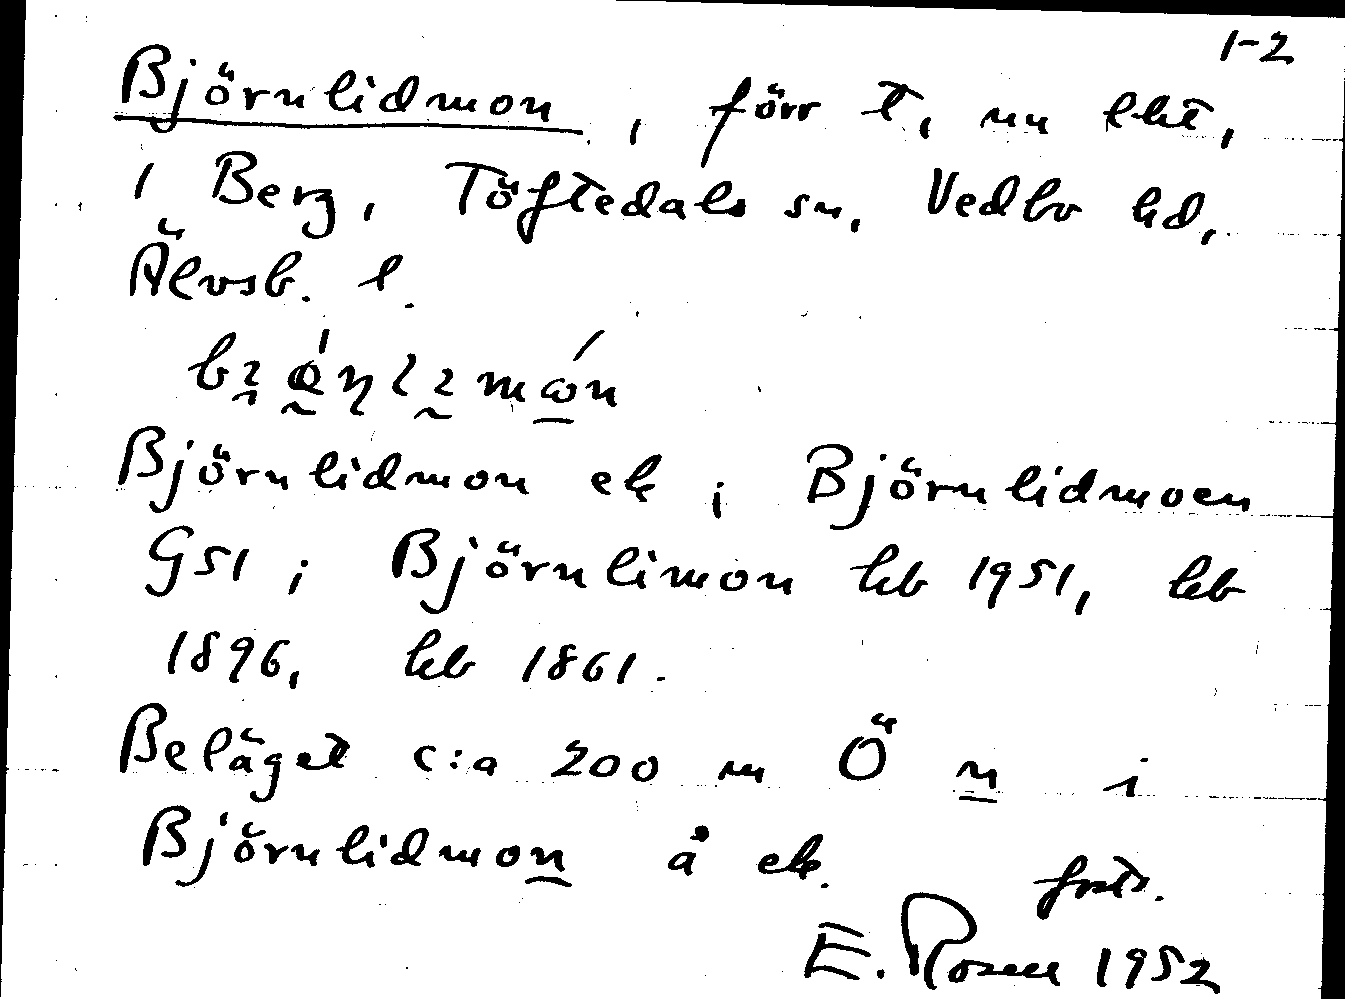 1-2
Björnlidmon, förr t, nu lht,
i Berg, Töftedals sn, Vedbo hd,
Älvsb. l.
Björnlidmon ek; Björnlidmoen
GS1; Björnlimon hb 1951, hb
1896, hb 1861.
Beläget c:a 200 m Ö n i
Björnlidmon å ek. forts.
E. Rosell 1952